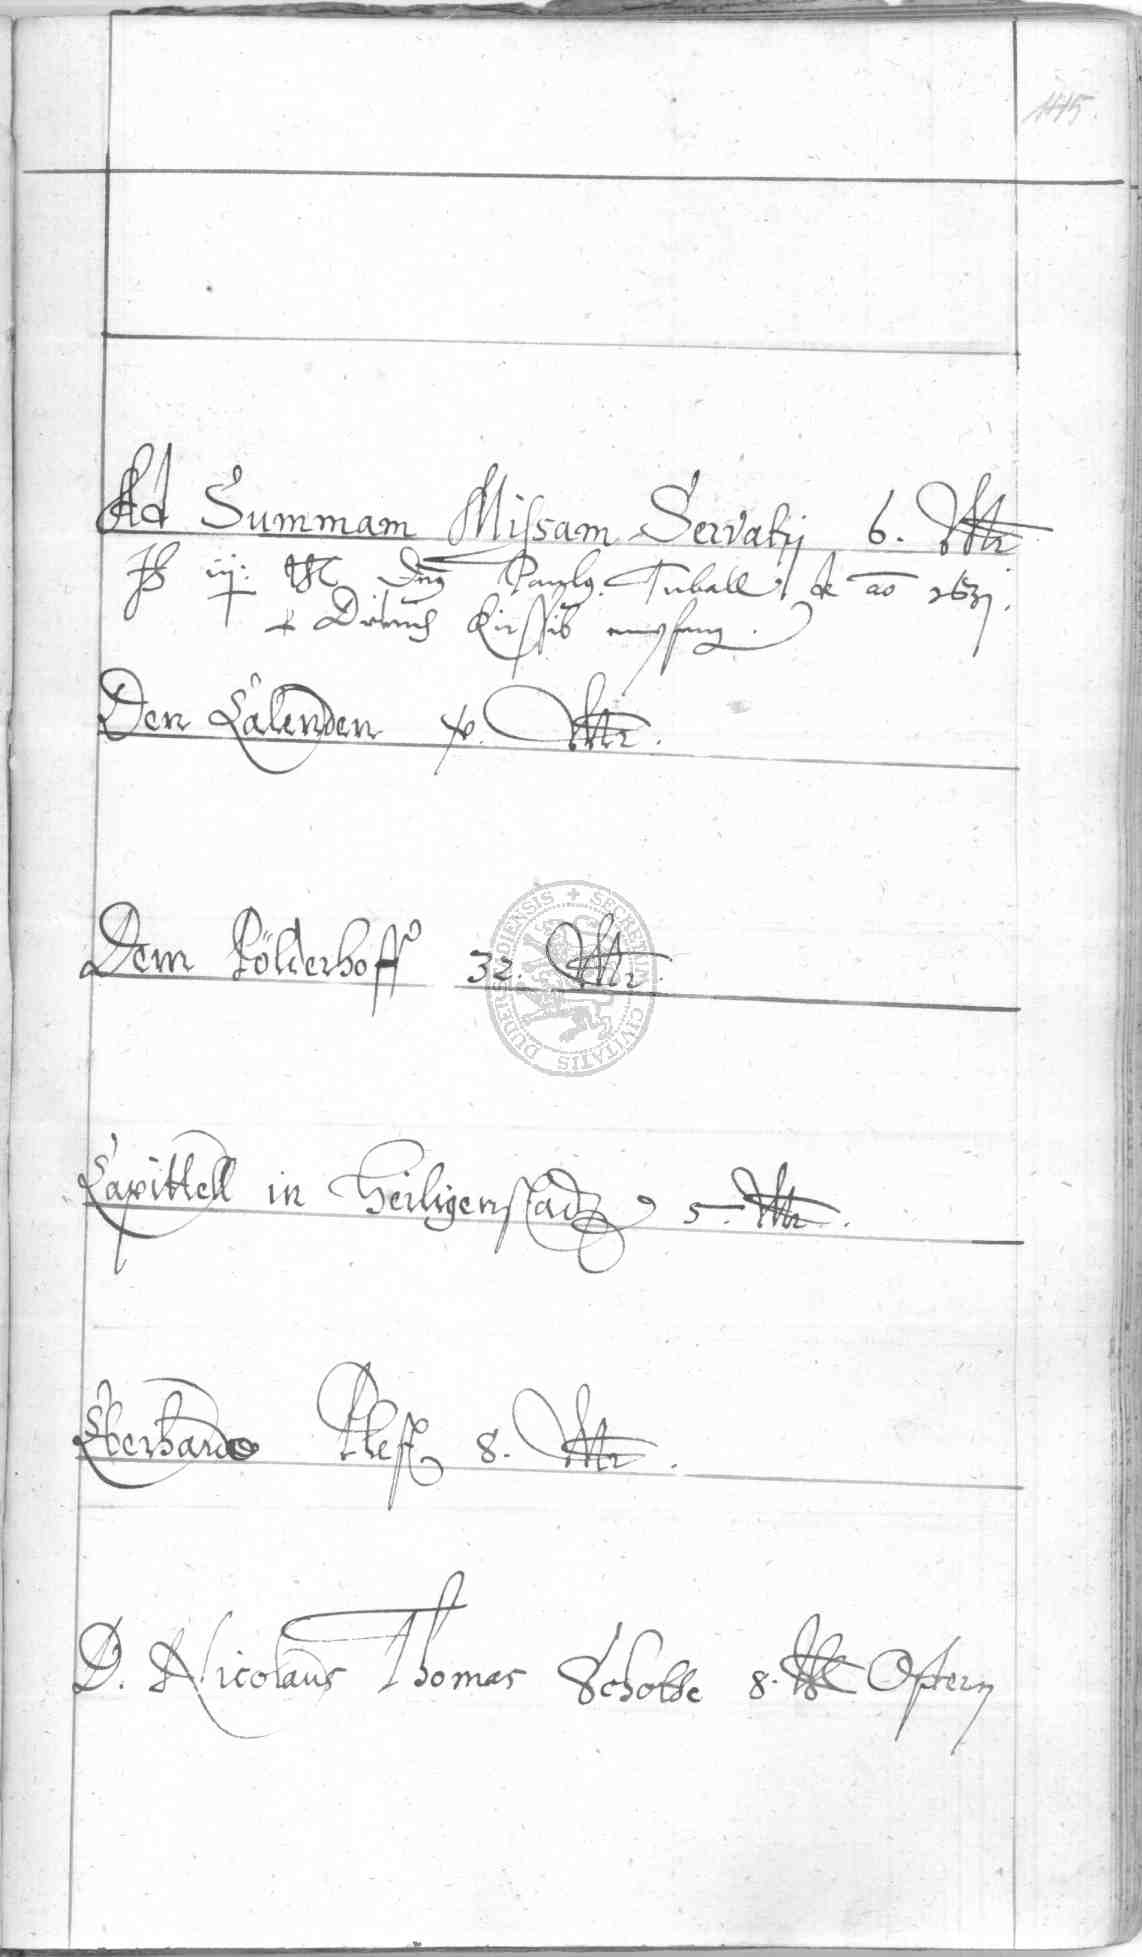 115.
Ad Summam Missam Servatij 6. Mr
iij: Mr Dns Paulus Tuball de ao 1631.
Den Calenden x. Mr.
Dem Pölderhoff 32. Mr.
SECRETUM CIVITATIS DUDERSTADIENSIS
Capittell in Heiligenstadt 5. Mr.
Eberhardo Plesse 8. Mr.
D. Nicolaus Thomas Schotte 8. Mr Ostern